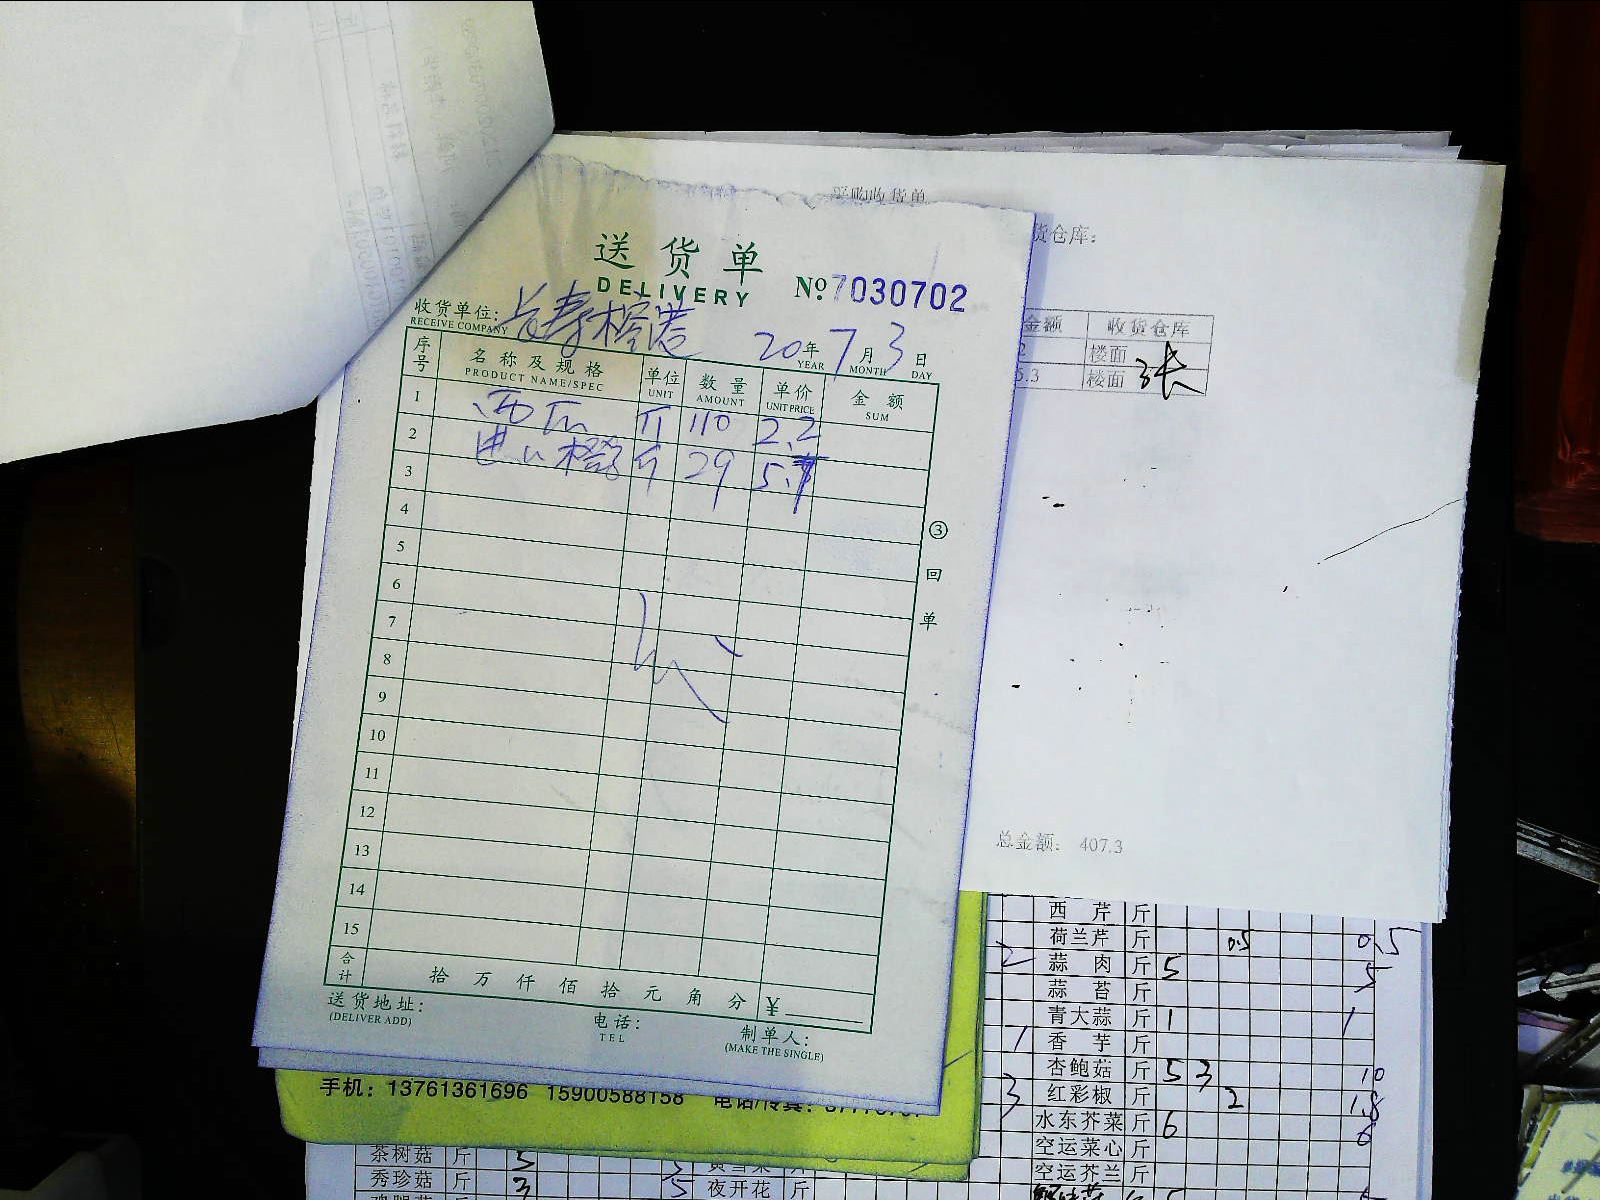 采购收货单
货仓库:
送货单
DELIVERY
№ 7030702
收货单位: 长寿榕港
RECEIVE COMPANY
20 年 7 月 3 日
YEAR MONTH DAY
序号 名称及规格 单位 数量 单价 金额
PRODUCT NAME/SPEC UNIT AMOUNT UNIT PRICE SUM
1 西瓜 斤 110 2.2
2 进口橙 斤 29
3
4
5
6
7
8
9
10
11
12
13
14
15
③回单
合计 拾 万 仟 佰 拾 元 角 分 ¥
送货地址:
(DELIVER ADD)
电话:
TEL
制单人:
(MAKE THE SINGLE)
金额 收货仓库
2 楼面
5.3 楼面
总金额: 407.3
手机: 13761361696 15900588158 电话/传真:
西芹 斤
荷兰芹 斤 0.5 0.5
2 蒜肉 斤 5 5
蒜苔 斤
青大蒜 斤 1 1
1 香芋 斤
杏鲍菇 斤 5 3 10
3 红彩椒 斤 2 1.8
水东芥菜 斤 6 6
空运菜心 斤
空运芥兰 斤
茶树菇 斤 5 5
秀珍菇 斤 3 5 夜开花 斤